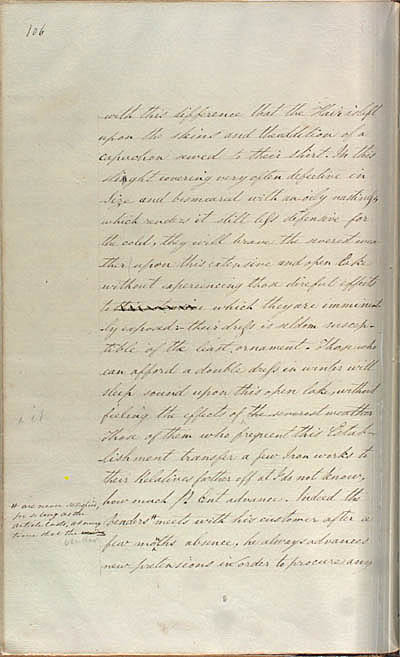 106
with this difference that the Hair is left
upon the skins and the addition of a
capuchon sewed to their shirt. In this
slight covering very often defective in
Size and besmeared with an oily nastiness
which renders it still less defensive for
the cold, they will brave the severest wea
ther upon this extensive and open Lake
without experiencing those direful effects
to which they are imminent
ly exposed - their dress is seldom suscep-
tible of the least ornament. Those who
can afford a double dress in winter will
sleep sound upon this open lake, without
feeling the effects of the severest weather
Those of them who frequent this Estab-
lishment transfer a few Iron works to
their Relatives farther off at I do not know,
how much P. Cent advance. Indeed the
venders " meets with his customer after a
few months absence, he always advances
new pretensions in order to procure any
" are never
for so long as the
article lasts, at any
time that the
vender